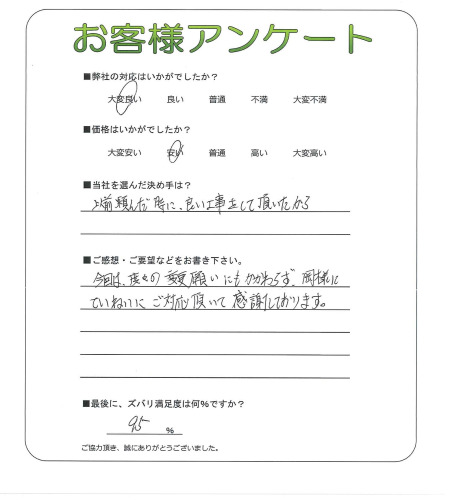 お客様アンケート
■弊社の対応はいかがでしたか？
大変良い　良い　普通　不満　大変不満
■価格はいかがでしたか？
大変安い　安い　普通　高い　大変高い
■当社を選んだ決め手は？
以前頼んだ時に、良い工事をして頂いたから
■ご感想・ご要望などをお書き下さい。
今回は、度々の変更願いにもかかわらず、岡様に
ていねいに ご対応頂いて 感謝しております。
■最後に、ズバリ満足度は何％ですか？
95 ％
ご協力頂き、誠にありがとうございました。